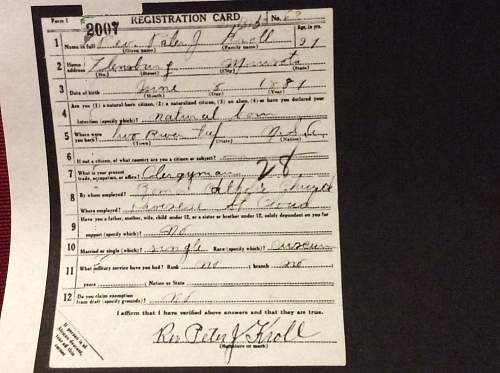 Form 1
2007
REGISTRATION CARD
No.
1 Name in full Rev. Peter J Kroll Age, in yrs.
(Given name) (Family name)
2 Home address Flensburg Minnesota
(No.) (Street) (City) (State)
3 Date of birth June 8
(Month) (Day) (Year)
4 Are you (1) a natural-born citizen, (2) a naturalized citizen, (3) an alien, (4) or have you declared your
intention (specify which)? natural born
5 Where were you born? Two River
(Town) (State) (Nation)
6 If not a citizen, of what country are you a citizen or subject?
7 What is your present trade, occupation, or office? Clergyman 28
8 By whom employed? Roman Catholic Church
Where employed? Diocese St Cloud
9 Have you a father, mother, wife, child under 12, or a sister or brother under 12, solely dependent on you for
support (specify which)? No
10 Married or single (which)? single Race (specify which)?
11 What military service have you had? Rank no ; branch no
years ; Nation or State
12 Do you claim exemption from draft (specify grounds)? No
I affirm that I have verified above answers and that they are true.
Rev Peter J. Kroll
(Signature or mark)
If person is of African descent, tear off this corner